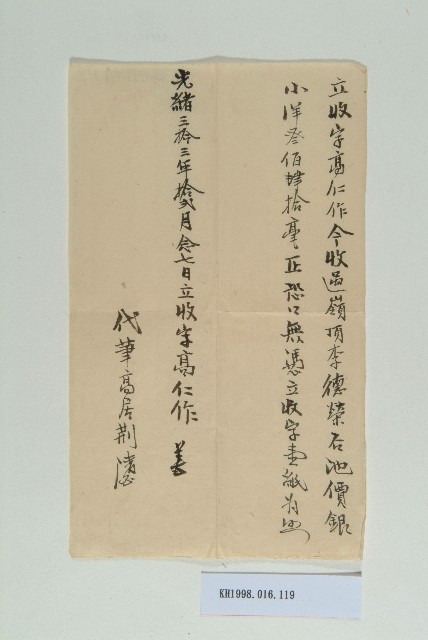 立收字高仁作今收過嶺頂李德榮石池價銀
小洋叁佰肆拾毫正恐口無憑立收字壹紙为照
光緒三拾三年拾弍月念七日立收字高仁作
代筆高居荆
KH1998.016.119